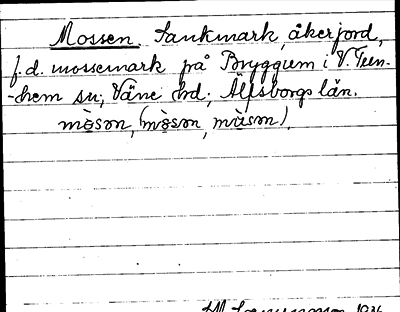 Mossen Sankmark, åkerjord,
f.d. mossemark på Bryggum i V. Teen-
-hem sn; Väne hd; Älfsborgs län.
mòson, (mòson, mùson).
1936